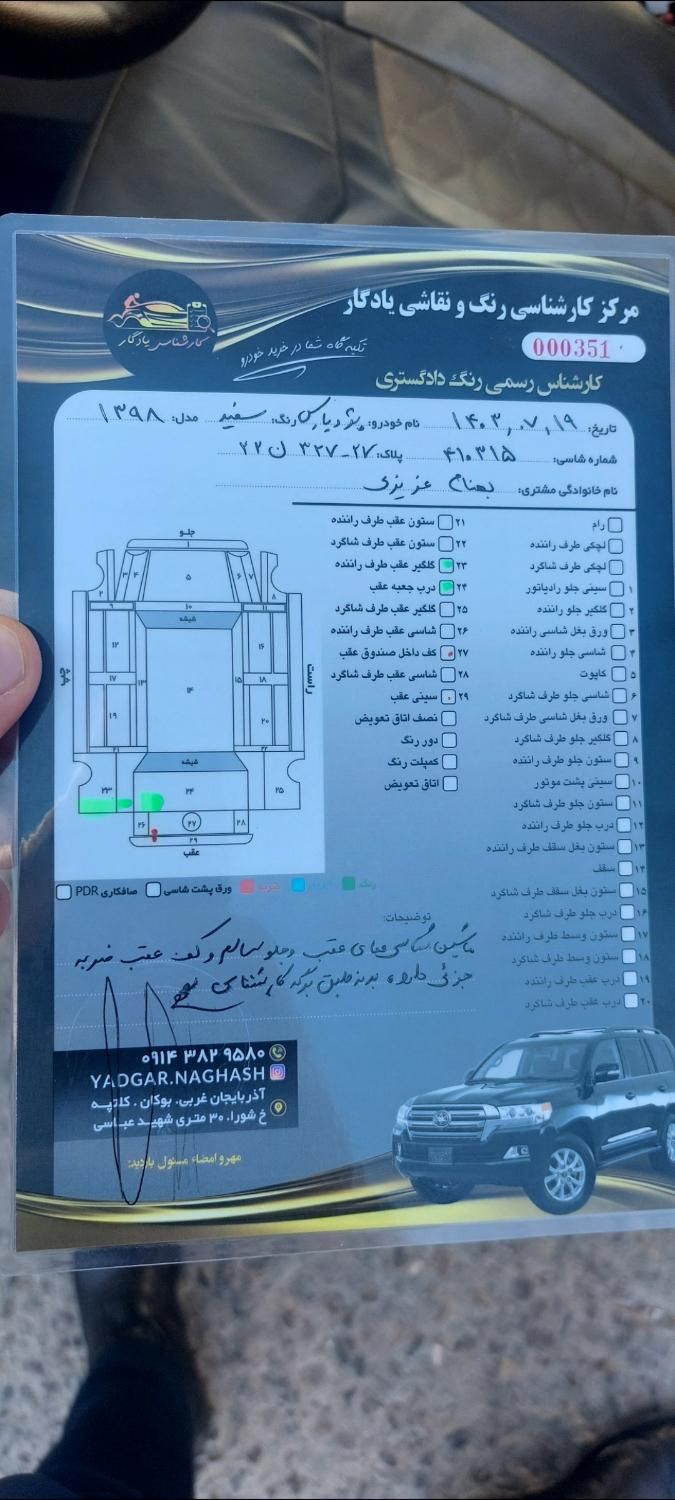 مرکز کارشناسی رنگ و نقاشی یادگار
کارشناسی یادگار
تکیه گاه شما در خرید خودرو
000351
کارشناس رسمی رنگ دادگستری
تاریخ: ۱۴۰۳,۰۷,۱۹ نام خودرو: پژو پارس رنگ: سفید مدل: ۱۳۹۸
شماره شاسی: ۴۱۰۳۱۵ پلاک: ۲۷-۳۲۷ ن ۲۲
نام خانوادگی مشتری: بهنام عزیزی
رام
لچکی طرف راننده
لچکی طرف شاگرد
۱ سینی جلو رادیاتور
۲ گلگیر جلو راننده
۳ ورق بغل شاسی راننده
۴ شاسی جلو راننده
۵ کاپوت
۶ شاسی جلو طرف شاگرد
۷ ورق بغل شاسی طرف شاگرد
۸ گلگیر جلو طرف شاگرد
۹ ستون جلو طرف راننده
۱۰ سینی پشت موتور
۱۱ ستون جلو طرف شاگرد
۱۲ درب جلو طرف راننده
۱۳ ستون بغل سقف طرف راننده
۱۴ سقف
۱۵ ستون بغل سقف طرف شاگرد
۱۶ درب جلو طرف شاگرد
۱۷ ستون وسط طرف راننده
۱۸ ستون وسط طرف شاگرد
۱۹ درب عقب طرف راننده
۲۰ درب عقب طرف شاگرد
۲۱ ستون عقب طرف راننده
۲۲ ستون عقب طرف شاگرد
۲۳ گلگیر عقب طرف راننده
۲۴ درب جعبه عقب
۲۵ گلگیر عقب طرف شاگرد
۲۶ شاسی عقب طرف راننده
۲۷ کف داخل صندوق عقب
۲۸ شاسی عقب طرف شاگرد
۲۹ سینی عقب
نصف اتاق تعویض
دور رنگ
کمپلت رنگ
اتاق تعویض
جلو
۱
۲ ۳ ۴ ۵ ۶ ۷ ۸
۹ ۱۰ ۱۱
شیشه
۱۲ ۱۶
چپ راست
۱۷ ۱۳ ۱۴ ۱۵ ۱۸
۱۹ ۲۰
۲۱ ۲۲
شیشه
۲۳ ۲۴ ۲۵
۲۶ ۲۷ ۲۸
۲۹
عقب
رنگ ضربه ورق پشت شاسی صافکاری PDR
توضیحات:
ماشین شاسی های عقب و جلو سالم و کف عقب ضربه
جزئی دارد، بدنه طبق برگه کارشناسی
۰۹۱۴ ۳۸۲ ۹۵۸۰
YADGAR.NAGHASH
آذربایجان غربی. بوکان. کلتپه
خ شورا. ۳۰ متری شهید عباسی
مهر و امضاء مسئول بازدید: